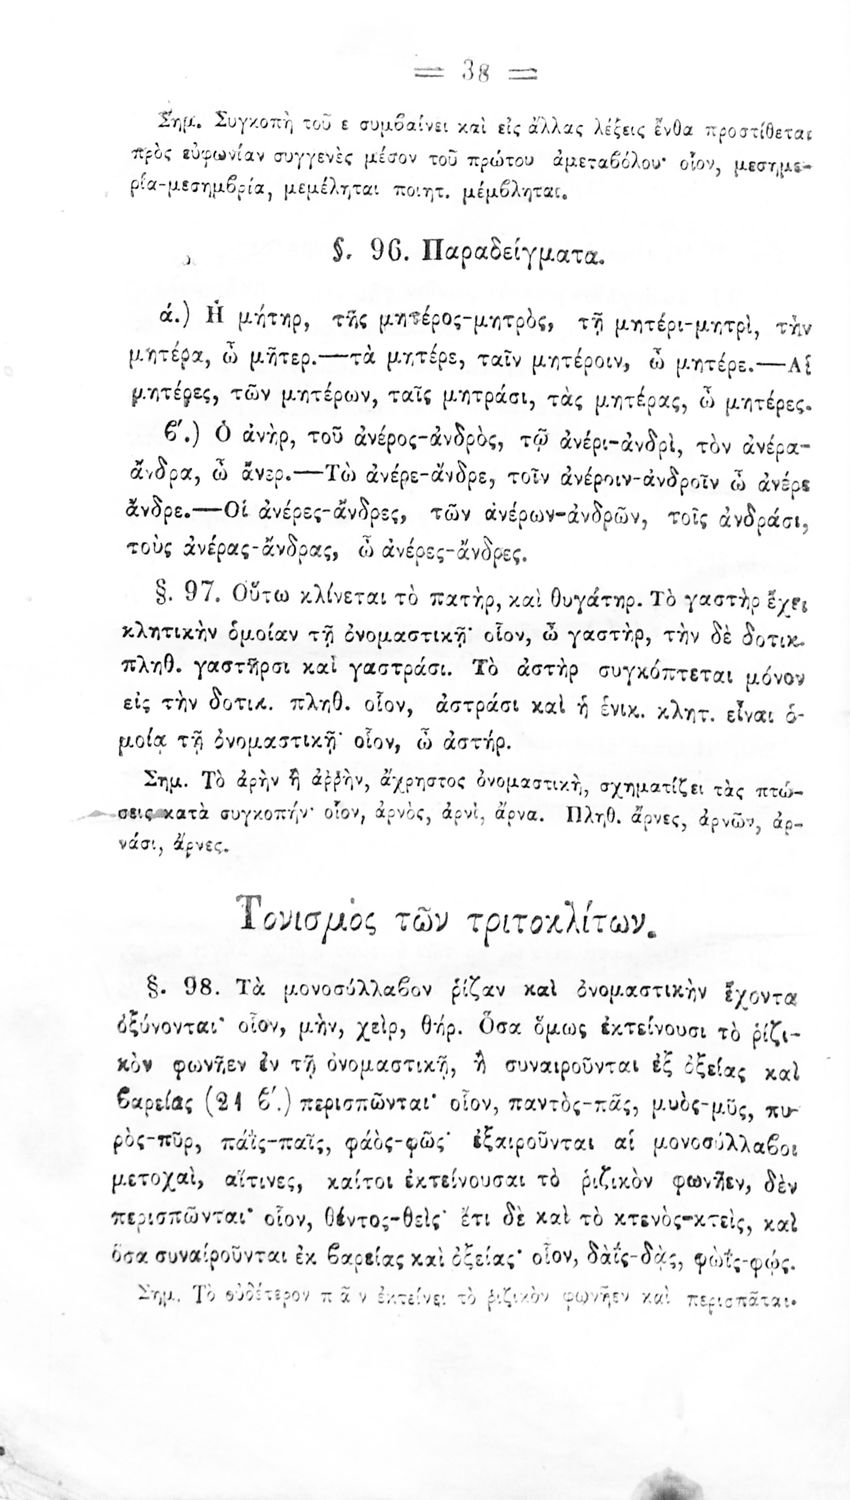 = 38 =
Σημ. Συγκοπὴ τοῦ ε συμβαίνει καὶ εἰς ἄλλας λέξεις ἔνθα προστίθεται
πρὸς εὐφωνίαν συγγενὲς μέσον τοῦ πρώτου ἀμεταβόλου· οἷον, μεσημε-
ρία-μεσημβρία, μεμέληται ποιητ. μέμβληται.
§. 96. Παραδείγματα.
ά.) Ἡ μήτηρ, τῆς μητέρος-μητρὸς, τῇ μητέρι-μητρὶ, τὴν
μητέρα, ὦ μῆτερ.—τὰ μητέρε, ταῖν μητέροιν, ὦ μητέρε.—Αἱ
μητέρες, τῶν μητέρων, ταῖς μητράσι, τὰς μητέρας, ὦ μητέρες.
ϐ΄.) Ὁ ἀνὴρ, τοῦ ἀνέρος-ἀνδρὸς, τῷ ἀνέρι-ἀνδρὶ, τὸν ἀνέρα-
ἄνδρα, ὦ ἄνερ.—Τὼ ἀνέρε-ἄνδρε, τοῖν ἀνέροιν-ἀνδροῖν ὦ ἀνέρε
ἄνδρε.—Οἱ ἀνέρες-ἄνδρες, τῶν ἀνέρων-ἀνδρῶν, τοῖς ἀνδράσι,
τοὺς ἀνέρας-ἄνδρας, ὦ ἀνέρες-ἄνδρες.
§. 97. Οὕτω κλίνεται τὸ πατὴρ, καὶ θυγάτηρ. Τὸ γαστὴρ ἔχει
κλητικὴν ὁμοίαν τῇ ὀνομαστικῇ· οἷον, ὦ γαστὴρ, τὴν δὲ δοτικ.
πληθ. γαστῆρσι καὶ γαστράσι. Τὸ ἀστὴρ συγκόπτεται μόνον
εἰς τὴν δοτικ. πληθ. οἷον, ἀστράσι καὶ ἡ ἑνικ. κλητ. εἶναι ὁ-
μοία τῇ ὀνομαστικῇ· οἷον, ὦ ἀστήρ.
Σημ. Τὸ ἀρὴν ἢ ἀῤῥὴν, ἄχρηστος ὀνομαστικὴ, σχηματίζει τὰς πτώ-
σεις κατὰ συγκοπήν· οἷον, ἀρνὸς, ἀρνὶ, ἄρνα. Πληθ. ἄρνες, ἀρνῶν, ἀρ-
νάσι, ἄρνες.
Τονισμὸς τῶν τριτοκλίτων.
§. 98. Τὰ μονοσύλλαβον ῥίζαν καὶ ὀνομαστικὴν ἔχοντα
ὀξύνονται· οἷον, μὴν, χεὶρ, θήρ. Ὅσα ὅμως ἐκτείνουσι τὸ ῥίζι-
κὸν φωνῆεν ἐν τῇ ὀνομαστικῇ, ἢ συναιροῦνται ἐξ ὀξείας καὶ
βαρείας (21 ϐ΄.) περισπῶνται· οἷον, παντὸς-πᾶς, μυὸς-μῦς, πυ-
ρὸς-πῦρ, πάϊς-παῖς, φάὸς-φῶς· ἐξαιροῦνται αἱ μονοσύλλαβοι
μετοχαὶ, αἵτινες, καίτοι ἐκτείνουσαι τὸ ῥιζικὸν φωνῆεν, δὲν
περισπῶνται· οἷον, θέντος-θεὶς· ἔτι δὲ καὶ τὸ κτενὸς-κτεὶς, καὶ
ὅσα συναίροῦνται ἐκ βαρείας καὶ ὀξείας· οἷον, δὰΐς-δᾲς, φὼΐς-φῴς.
Σημ. Τὸ οὐδέτερον π ᾶ ν ἐκτείνει τὸ ῥιζικὸν φωνῆεν καὶ περισπᾶται.